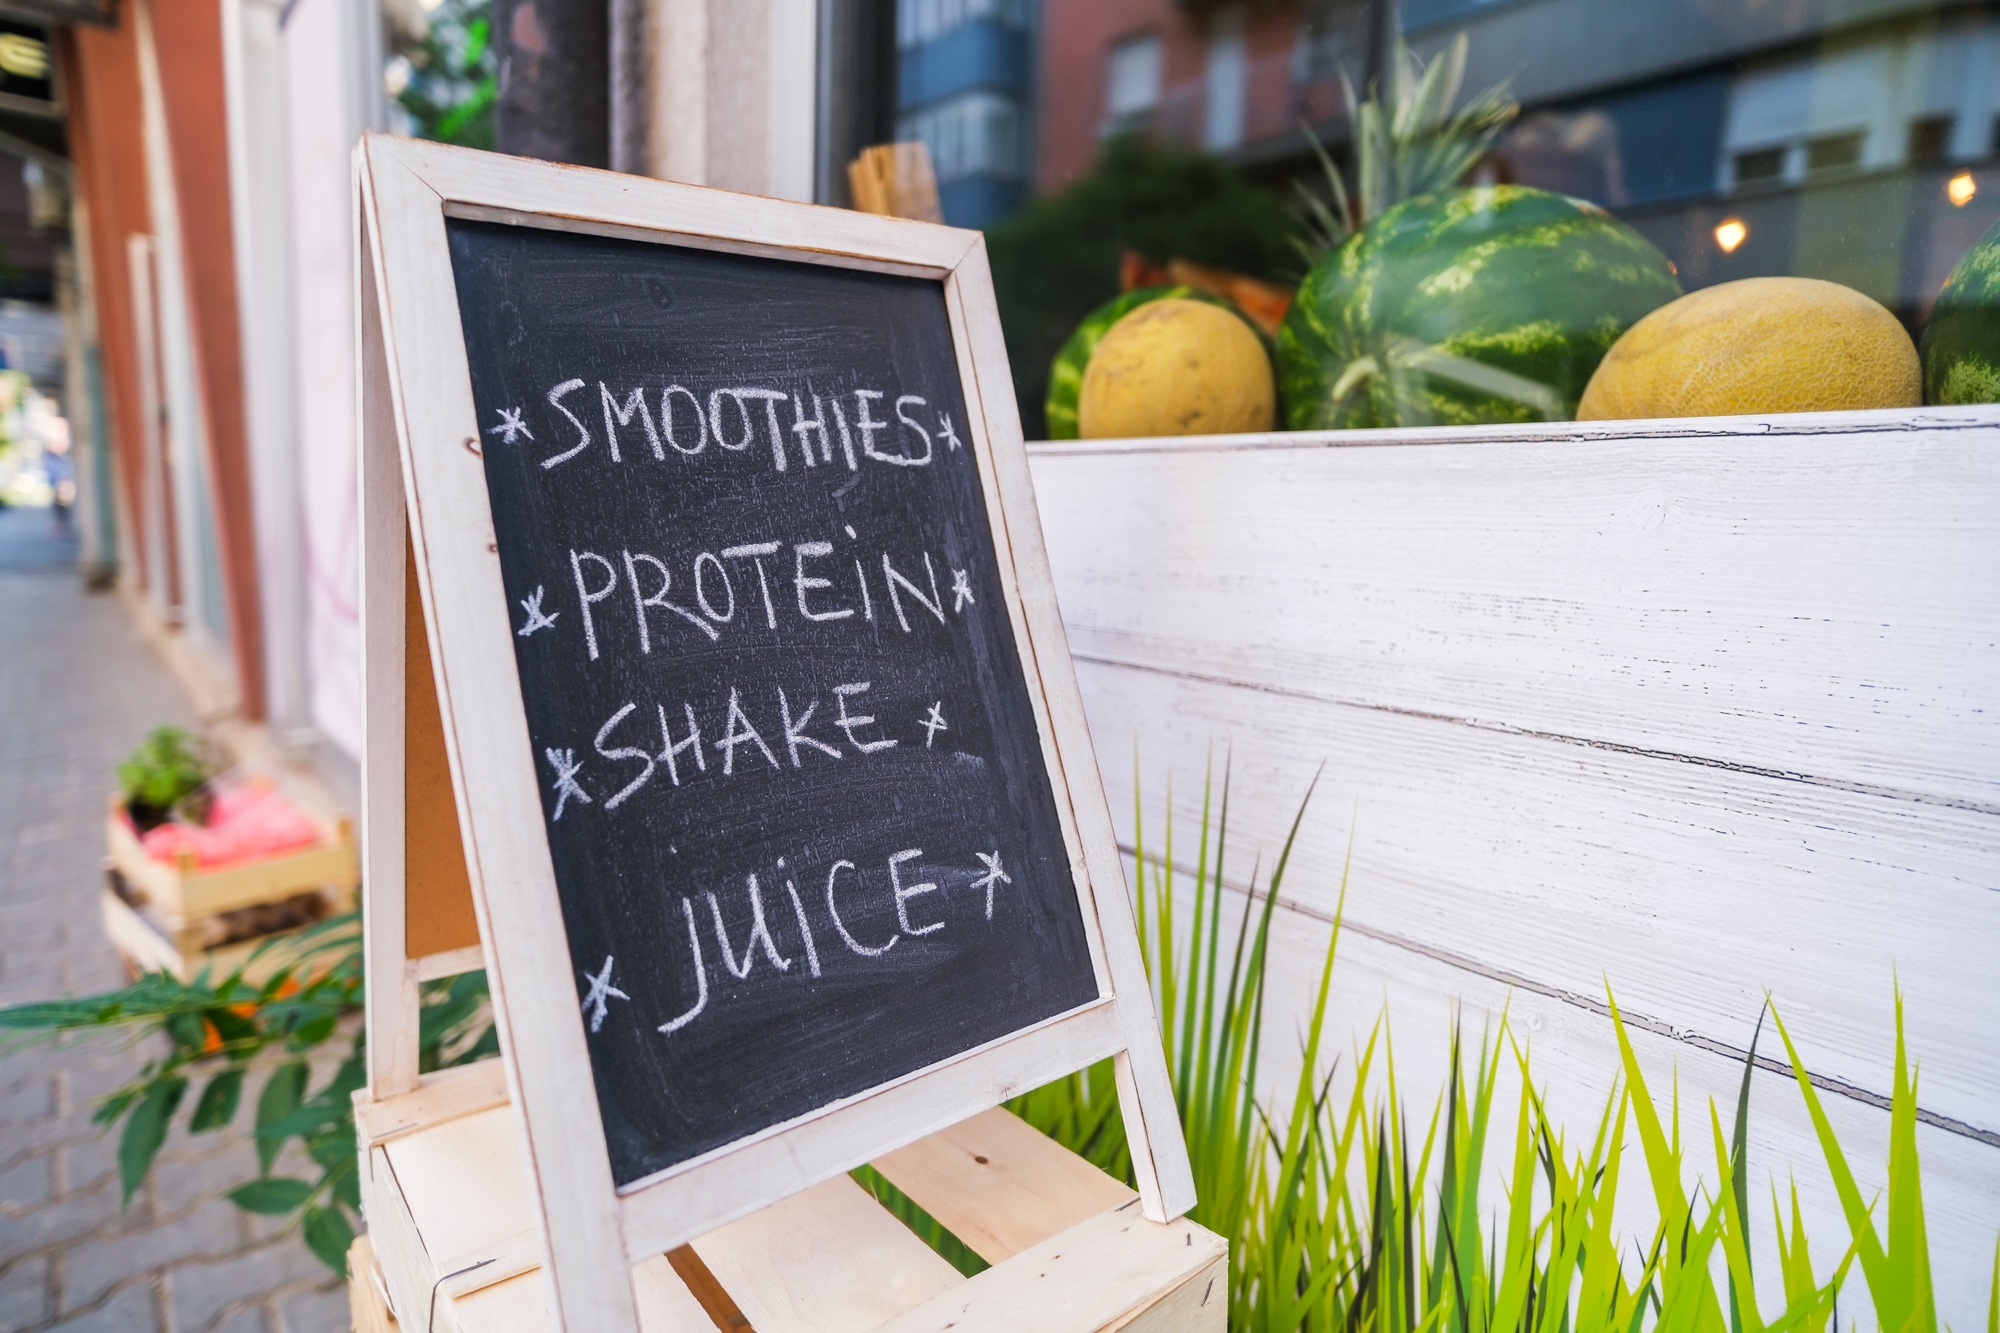 * SMOOTHIES *
* PROTEiN *
* SHAKE *
* jUiCE *